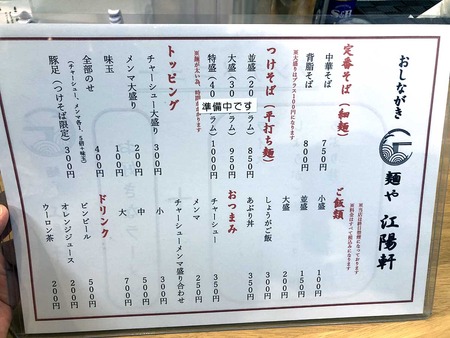 おしながき
麺や 江陽軒
定番そば（細麺）
中華そば 750円
背脂そば 800円
※大盛りはプラス100円になります
つけそば（平打ち麺）
並盛（20 ラム）850円
大盛（30 ラム）950円
特盛（40 ラム）1000円
準備中です
※麺が太い為、時間
トッピング
チャーシュー大盛り 300円
メンマ大盛り 200円
味玉 100円
全部のせ 400円
（チャーシュー、メンマ各1．5倍＋味玉）
豚足（つけそば限定）300円
※当店は終日禁煙になっております
※料金はすべて税込みになります
ご飯類
小盛 100円
並盛 150円
大盛 200円
しょうがご飯 350円
あぶり丼 350円
おつまみ
チャーシュー 350円
メンマ 250円
チャーシューメンマ盛り合わせ
小 300円
中 500円
大 700円
ドリンク
ビンビール 500円
オレンジジュース 200円
ウーロン茶 200円